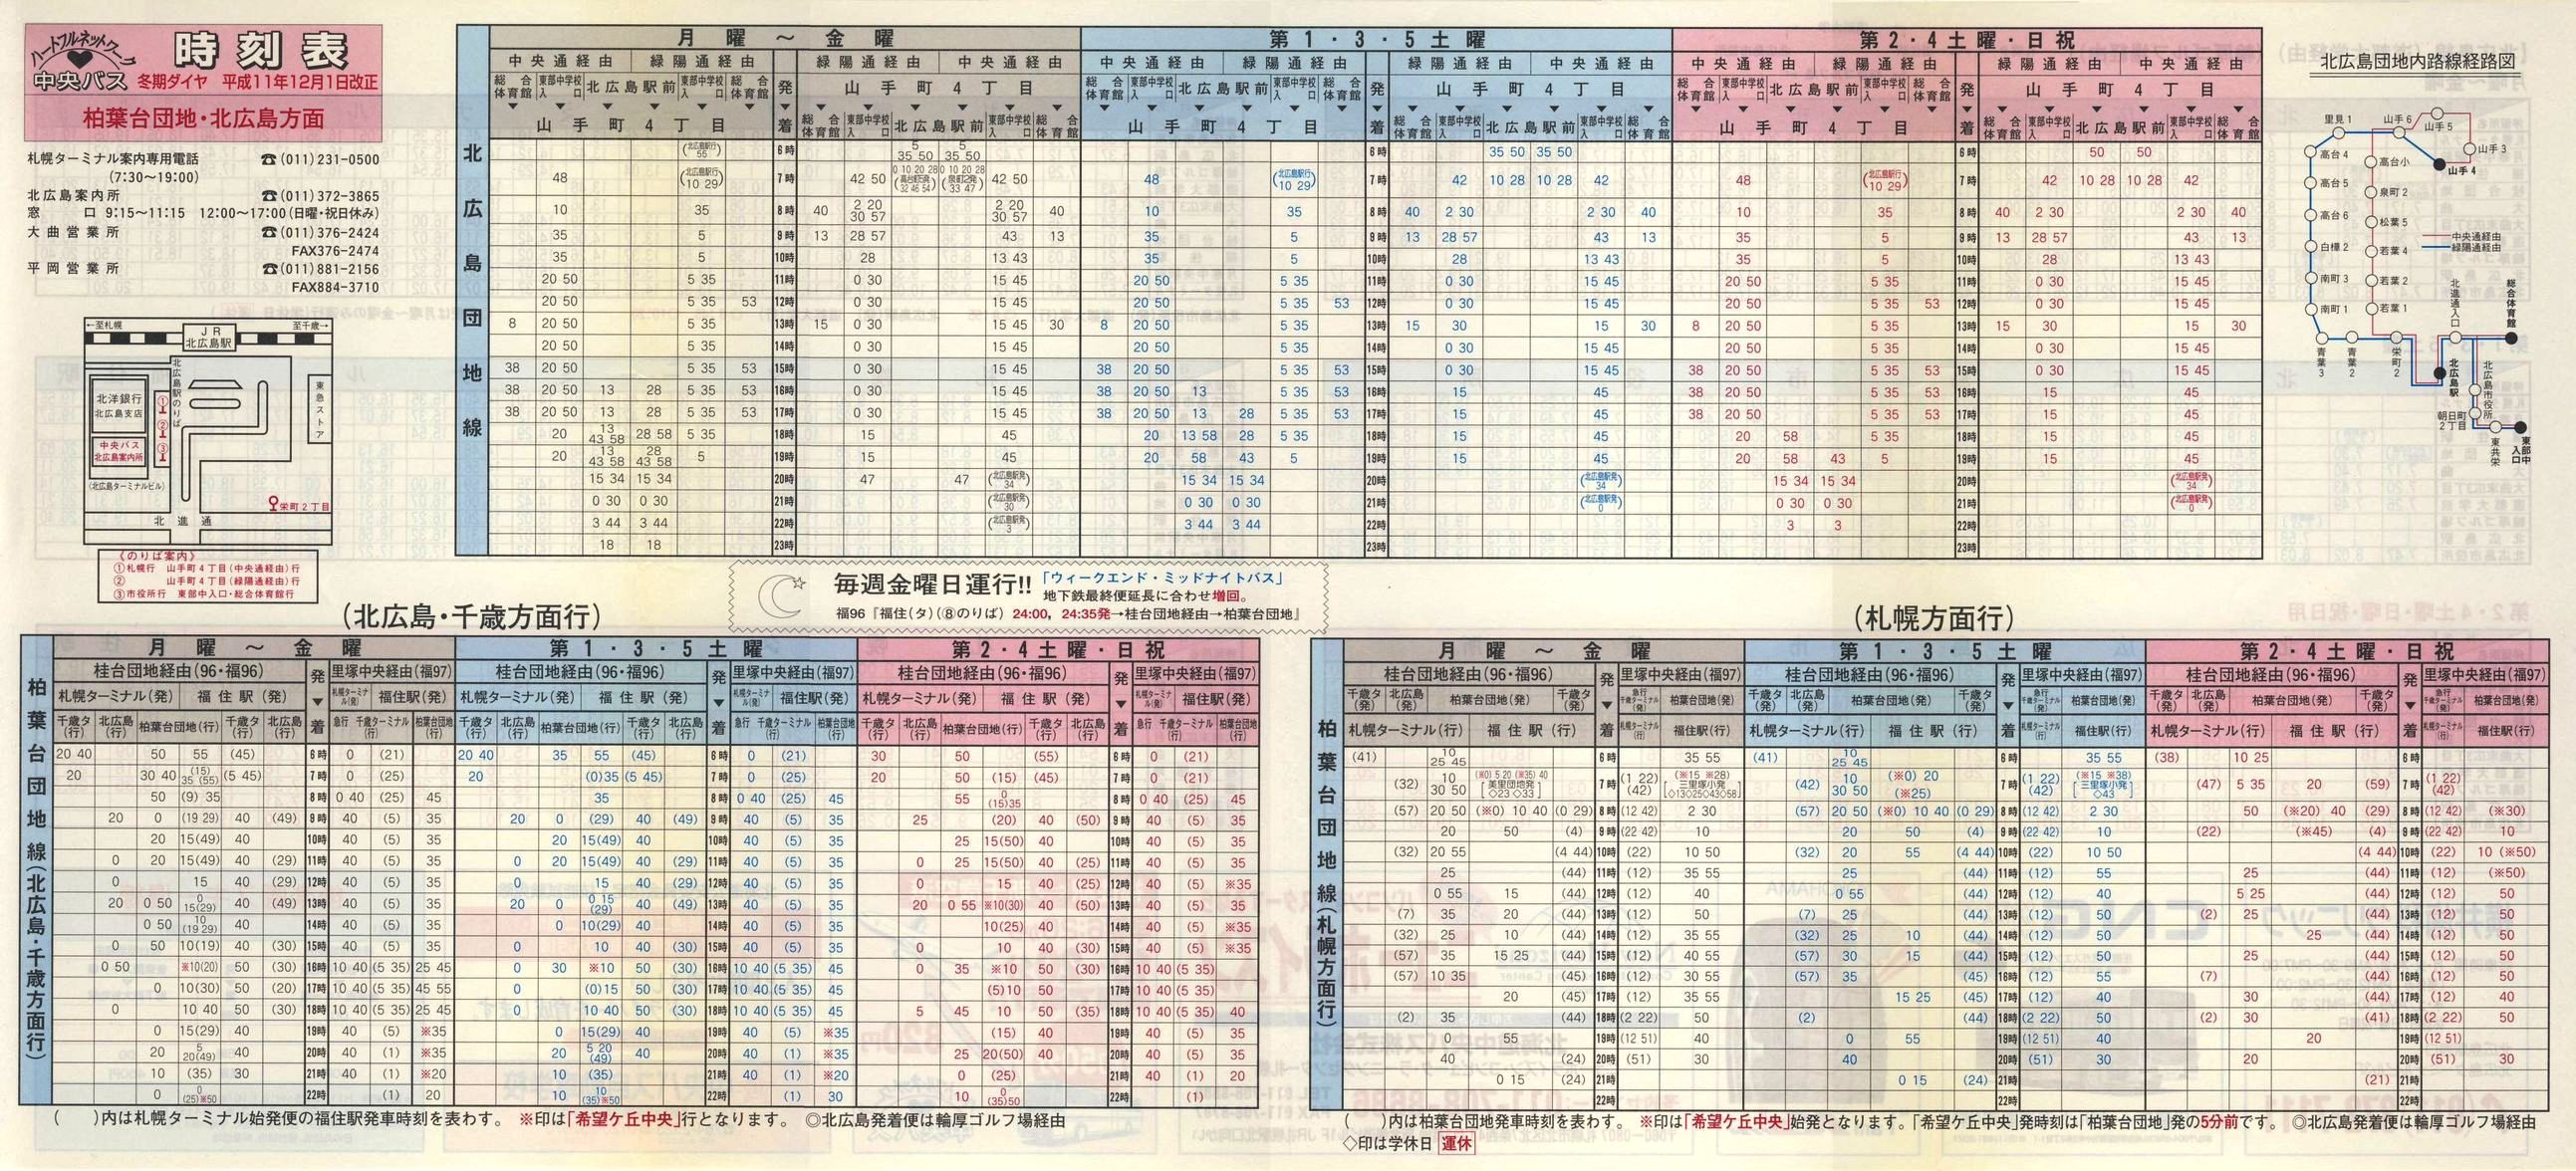 ハートフルネットワーク
時刻表
中央バス
冬期ダイヤ 平成11年12月1日改正
柏葉台団地・北広島方面
札幌ターミナル案内専用電話 ☎(011)231-0500
(7:30〜19:00)
北広島案内所 ☎(011)372-3865
窓口 9:15〜11:15 12:00〜17:00(日曜・祝日休み)
大曲営業所 ☎(011)376-2424
FAX376-2474
平岡営業所 ☎(011)881-2156
FAX884-3710
←至札幌 JR北広島駅 至千歳→
北洋銀行
北広島支店
中央バス
北広島案内所
(北広島ターミナルビル)
北広島駅のりば
① ② ③
東急ストア
栄町2丁目
北進通
《のりば案内》
①札幌行 山手町4丁目(中央通経由)行
② 山手町4丁目(緑陽通経由)行
③市役所行 東部中入口・総合体育館行
北広島団地線
月曜〜金曜
中央通経由 緑陽通経由 発 緑陽通経由 中央通経由
総合体育館 東部中学校入口 北広島駅前 東部中学校入口 総合体育館 山手町4丁目
山手町4丁目 着 総合体育館 東部中学校入口 北広島駅前 東部中学校入口 総合体育館
第1・3・5土曜
中央通経由 緑陽通経由 発 緑陽通経由 中央通経由
総合体育館 東部中学校入口 北広島駅前 東部中学校入口 総合体育館 山手町4丁目
山手町4丁目 着 総合体育館 東部中学校入口 北広島駅前 東部中学校入口 総合体育館
第2・4土曜・日祝
中央通経由 緑陽通経由 発 緑陽通経由 中央通経由
総合体育館 東部中学校入口 北広島駅前 東部中学校入口 総合体育館 山手町4丁目
山手町4丁目 着 総合体育館 東部中学校入口 北広島駅前 東部中学校入口 総合体育館
(北広島駅行55) 6時 5 35 50 5 35 50 6時 35 50 35 50 6時 50 50
48 (北広島駅行10 29) 7時 42 50 42 50 48 (北広島駅行10 29) 7時 42 10 28 10 28 42 48 (北広島駅行10 29) 7時 42 10 28 10 28 42
10 35 8時 40 2 20 30 57 2 20 30 57 40 10 35 8時 40 2 30 2 30 40 10 35 8時 40 2 30 2 30 40
35 5 9時 13 28 57 43 13 35 5 9時 13 28 57 43 13 35 5 9時 13 28 57 43 13
35 5 10時 28 13 43 35 5 10時 28 13 43 35 5 10時 28 13 43
20 50 5 35 11時 0 30 15 45 20 50 5 35 11時 0 30 15 45 20 50 5 35 11時 0 30 15 45
20 50 5 35 53 12時 0 30 15 45 20 50 5 35 53 12時 0 30 15 45 20 50 5 35 53 12時 0 30 15 45
8 20 50 5 35 13時 15 0 30 15 45 30 8 20 50 5 35 13時 15 30 15 30 8 20 50 5 35 13時 15 30 15 30
20 50 5 35 14時 0 30 15 45 20 50 5 35 14時 0 30 15 45 20 50 5 35 14時 0 30 15 45
38 20 50 5 35 53 15時 0 30 15 45 38 20 50 5 35 53 15時 0 30 15 45 38 20 50 5 35 53 15時 0 30 15 45
38 20 50 13 28 5 35 53 16時 0 30 15 45 38 20 50 13 5 35 53 16時 15 45 38 20 50 5 35 53 16時 15 45
38 20 50 13 28 5 35 53 17時 0 30 15 45 38 20 50 13 28 5 35 53 17時 15 45 38 20 50 5 35 53 17時 15 45
20 13 43 58 28 58 5 35 18時 15 45 20 13 58 28 5 35 18時 15 45 20 58 5 35 18時 15 45
20 13 43 58 28 43 58 5 19時 15 45 20 58 43 5 19時 15 45 20 58 43 5 19時 15 45
15 34 15 34 20時 47 47 (北広島駅発34) 15 34 15 34 20時 (北広島駅発34) 15 34 15 34 20時 (北広島駅発34)
0 30 0 30 21時 (北広島駅発30) 0 30 0 30 21時 (北広島駅発0) 0 30 0 30 21時 (北広島駅発0)
3 44 3 44 22時 (北広島駅発3) 3 44 3 44 22時 3 3 22時
18 18 23時 23時 23時
北広島団地内路線経路図
里見1 山手6 山手5 山手3 山手4
高台4 高台小
高台5 泉町2
高台6 松葉5
白樺2 若葉4
南町3 若葉2
南町1 若葉1
中央通経由
緑陽通経由
北進通入口 総合体育館
青葉3 青葉2 栄町2 北広島駅 北広島市役所
朝日町2丁目 東共栄 東部中入口
毎週金曜日運行!!
「ウィークエンド・ミッドナイトバス」
地下鉄最終便延長に合わせ増回。
福96『福住(タ)(⑧のりば) 24:00, 24:35発→桂台団地経由→柏葉台団地』
(北広島・千歳方面行)
柏葉台団地線(北広島・千歳方面行)
月曜〜金曜 第1・3・5土曜 第2・4土曜・日祝
桂台団地経由(96・福96) 発 里塚中央経由(福97) 桂台団地経由(96・福96) 発 里塚中央経由(福97) 桂台団地経由(96・福96) 発 里塚中央経由(福97)
札幌ターミナル(発) 福住駅(発) 札幌ターミナル(発) 福住駅(発) 札幌ターミナル(発) 福住駅(発)
千歳タ(行) 北広島(行) 柏葉台団地(行) 千歳タ(行) 北広島(行) 着 急行 千歳ターミナル(行) 柏葉台団地(行)
20 40 50 55 (45) 6時 0 (21) 20 40 35 55 (45) 6時 0 (21) 30 50 (55) 6時 0 (21)
20 30 40 (15) 35 (55) (5 45) 7時 0 (25) 20 (0)35 (5 45) 7時 0 (25) 20 50 (15) (45) 7時 0 (21)
50 (9) 35 8時 0 40 (25) 45 35 8時 0 40 (25) 45 55 0 (15)35 8時 0 40 (25) 45
20 0 (19 29) 40 (49) 9時 40 (5) 35 20 0 (29) 40 (49) 9時 40 (5) 35 25 (20) 40 (50) 9時 40 (5) 35
20 15(49) 40 10時 40 (5) 35 20 15(49) 40 10時 40 (5) 35 25 15(50) 40 10時 40 (5) 35
0 20 15(49) 40 (29) 11時 40 (5) 35 0 20 15(49) 40 (29) 11時 40 (5) 35 0 25 15(50) 40 (25) 11時 40 (5) 35
0 15 40 (29) 12時 40 (5) 35 0 15 40 (29) 12時 40 (5) 35 0 15 40 (25) 12時 40 (5) ※35
20 0 50 0 15(29) 40 (49) 13時 40 (5) 35 20 0 0 15 (29) 40 (49) 13時 40 (5) 35 20 0 55 ※10(30) 40 (50) 13時 40 (5) 35
0 50 10 (19 29) 40 14時 40 (5) 35 0 10(29) 40 14時 40 (5) 35 10(25) 40 14時 40 (5) ※35
0 50 10(19) 40 (30) 15時 40 (5) 35 0 10 40 (30) 15時 40 (5) 35 0 10 40 (30) 15時 40 (5) ※35
0 50 ※10(20) 50 (30) 16時 10 40 (5 35) 25 45 0 30 ※10 50 (30) 16時 10 40 (5 35) 45 0 35 ※10 50 (30) 16時 10 40 (5 35)
0 10(30) 50 (20) 17時 10 40 (5 35) 45 55 0 (0)15 50 (30) 17時 10 40 (5 35) 45 (5)10 50 17時 10 40 (5 35)
0 10 40 50 (30) 18時 10 40 (5 35) 25 45 0 10 40 50 (30) 18時 10 40 (5 35) 45 5 45 10 50 (35) 18時 10 40 (5 35) 40
0 15(29) 40 19時 40 (5) ※35 0 15(29) 40 19時 40 (5) ※35 (15) 40 19時 40 (5) 35
20 5 20(49) 40 20時 40 (1) ※35 20 5 20 (49) 40 20時 40 (1) ※35 25 20(50) 40 20時 40 (5) 35
10 (35) 30 21時 40 (1) ※20 10 (35) 21時 40 (1) ※20 0 (25) 21時 40 (1) 20
0 0 (25)※50 22時 (1) 20 10 10 (35)※50 22時 (1) 30 10 0 (35)50 22時 (1)
( )内は札幌ターミナル始発便の福住駅発車時刻を表わす。 ※印は「希望ケ丘中央」行となります。 ◎北広島発着便は輪厚ゴルフ場経由
(札幌方面行)
柏葉台団地線(札幌方面行)
月曜〜金曜 第1・3・5土曜 第2・4土曜・日祝
桂台団地経由(96・福96) 発 里塚中央経由(福97) 桂台団地経由(96・福96) 発 里塚中央経由(福97) 桂台団地経由(96・福96) 発 里塚中央経由(福97)
千歳タ(発) 北広島(発) 柏葉台団地(発) 千歳タ(発) 急行 千歳ターミナル(発) 柏葉台団地(発)
札幌ターミナル(行) 福住駅(行) 着 札幌ターミナル(行) 福住駅(行)
(41) 10 25 45 6時 35 55 (41) 10 25 45 6時 35 55 (38) 10 25 6時
(32) 10 30 50 (※0) 5 20 (※35) 40 [美里団地発 ◇23 ◇33] 7時 (1 22) (42) (※15 ※28) [三里塚小発 ◇13◇25◇43◇58] (42) 10 30 50 (※0) 20 (※25) 7時 (1 22) (42) (※15 ※38) [三里塚小発 ◇43] (47) 5 35 20 (59) 7時 (1 22) (42)
(57) 20 50 (※0) 10 40 (0 29) 8時 (12 42) 2 30 (57) 20 50 (※0) 10 40 (0 29) 8時 (12 42) 2 30 50 (※20) 40 (29) 8時 (12 42) (※30)
20 50 (4) 9時 (22 42) 10 20 50 (4) 9時 (22 42) 10 (22) (※45) (4) 9時 (22 42) 10
(32) 20 55 (4 44) 10時 (22) 10 50 (32) 20 55 (4 44) 10時 (22) 10 50 (4 44) 10時 (22) 10 (※50)
25 (44) 11時 (12) 35 55 25 (44) 11時 (12) 55 25 (44) 11時 (12) (※50)
0 55 15 (44) 12時 (12) 40 0 55 (44) 12時 (12) 40 5 25 (44) 12時 (12) 50
(7) 35 20 (44) 13時 (12) 50 (7) 25 (44) 13時 (12) 50 (2) 25 (44) 13時 (12) 50
(32) 25 10 (44) 14時 (12) 35 55 (32) 25 10 (44) 14時 (12) 50 25 (44) 14時 (12) 50
(57) 35 15 25 (44) 15時 (12) 40 55 (57) 30 15 (44) 15時 (12) 50 25 (44) 15時 (12) 50
(57) 10 35 (45) 16時 (12) 30 55 (57) 35 (45) 16時 (12) 55 (7) (44) 16時 (12) 50
20 (45) 17時 (12) 35 55 15 25 (45) 17時 (12) 40 30 (44) 17時 (12) 40
(2) 35 (44) 18時 (2 22) 50 (2) (44) 18時 (2 22) 50 (2) 30 (41) 18時 (2 22) 50
0 55 19時 (12 51) 40 0 55 19時 (12 51) 40 20 19時 (12 51)
40 (24) 20時 (51) 30 40 20時 (51) 30 20 20時 (51) 30
0 15 (24) 21時 0 15 (24) 21時 (21) 21時
22時 22時 22時
( )内は柏葉台団地発車時刻を表わす。 ※印は「希望ケ丘中央」始発となります。「希望ケ丘中央」発時刻は「柏葉台団地」発の5分前です。 ◎北広島発着便は輪厚ゴルフ場経由
◇印は学休日 運休